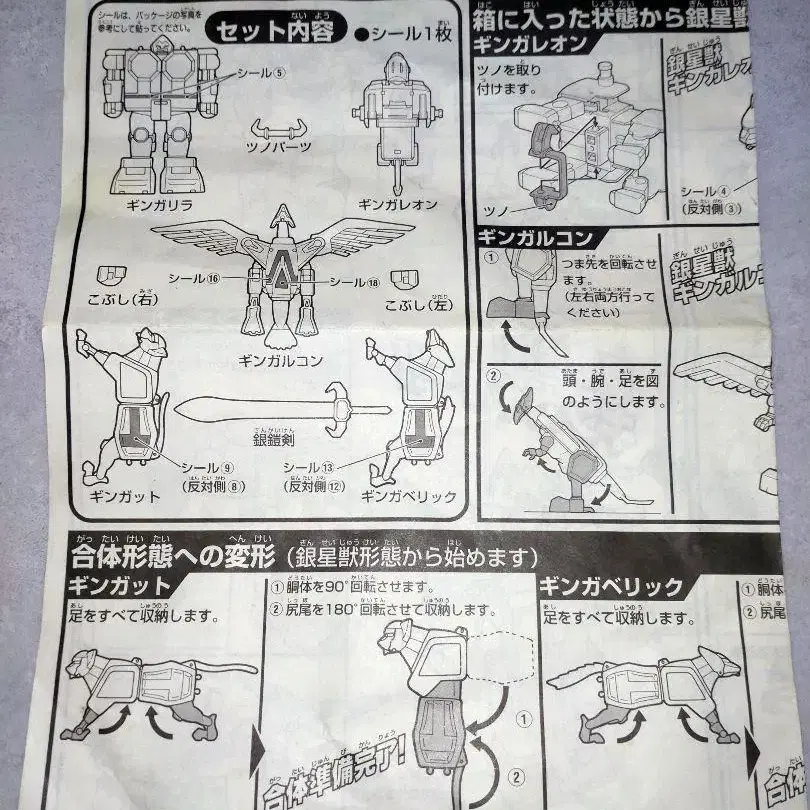 シールは、パッケージの写真を
参考にして貼ってください。
セット内容
●シール1枚
シール⑤
ツノパーツ
ギンガリラ
ギンガレオン
シール⑯
シール⑱
こぶし(右)
こぶし(左)
ギンガルコン
銀鎧剣
シール⑨
(反対側⑧)
シール⑬
(反対側⑫)
ギンガット
ギンガベリック
箱に入った状態から銀星獣
ギンガレオン
ツノを取り
付けます。
ツノ
銀星獣
ギンガレオ
シール④
(反対側③)
ギンガルコン
①
つま先を回転させ
ます。
(左右両方行って
ください)
銀星獣
ギンガルコ
②
頭・腕・足を図
のようにします。
合体形態への変形(銀星獣形態から始めます)
ギンガット
足をすべて収納します。
①胴体を90°回転させます。
②尻尾を180°回転させて収納します。
①
②
合体準備完了!
ギンガベリック
足をすべて収納します。
①胴体
②尻尾
合体